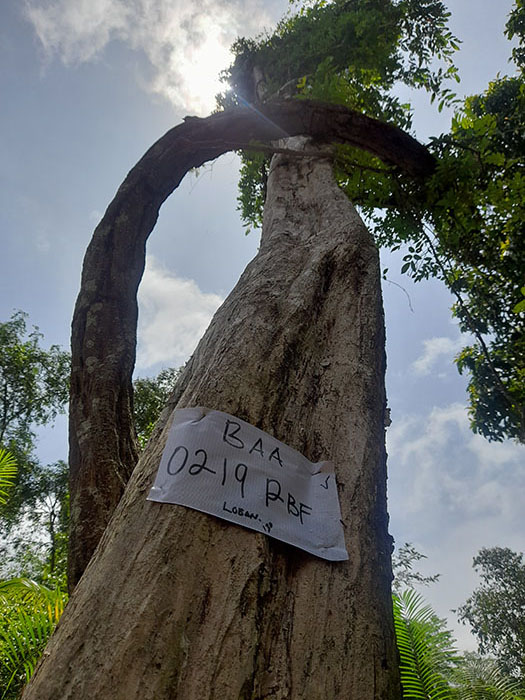 BAA
0219 RBF
LOBAN